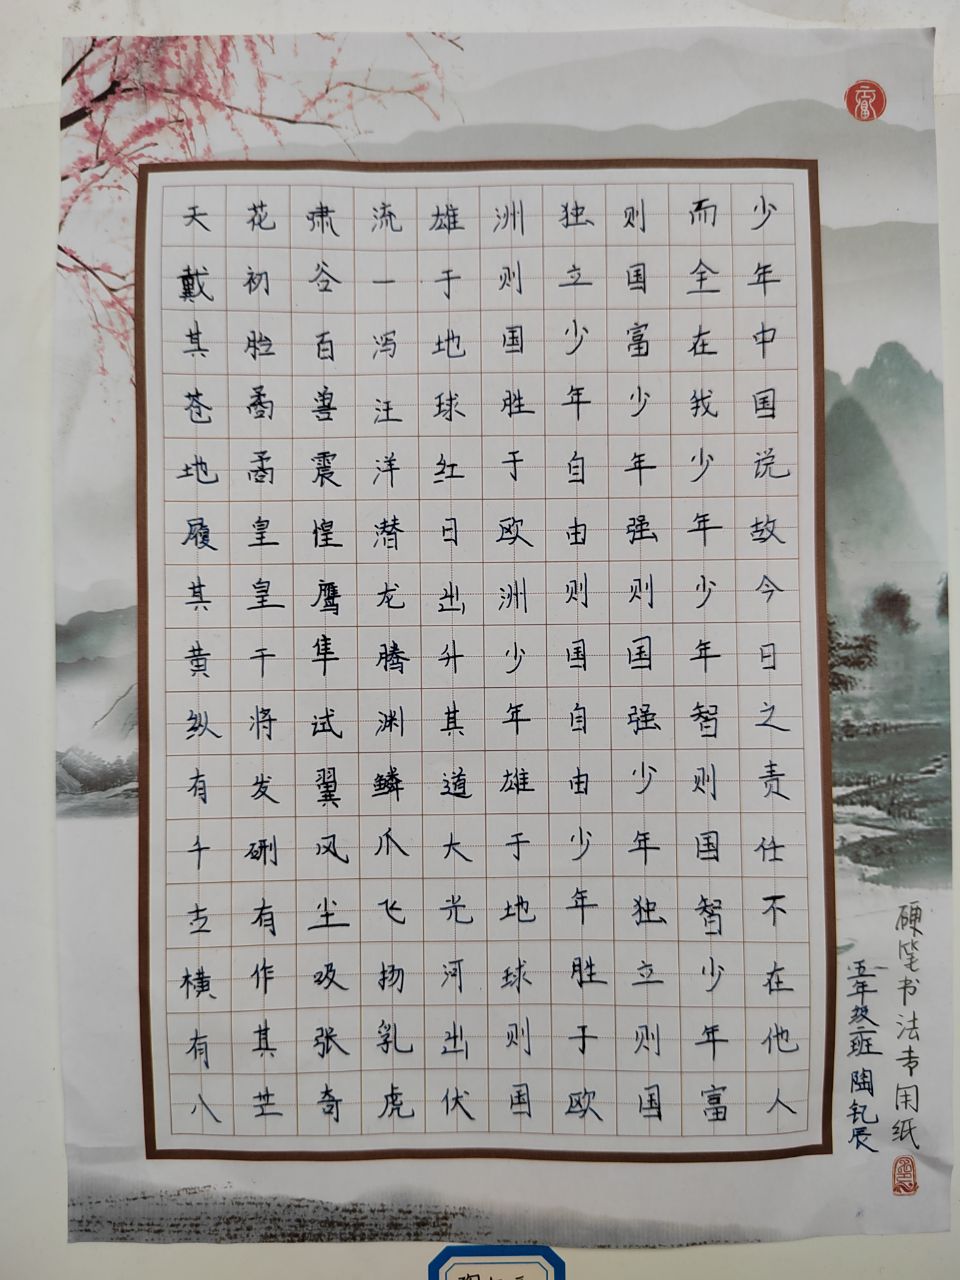 少年中国说故今日之责任不在他人
而全在我少年少年智则国智少年富
则国富少年强则国强少年独立则国
独立少年自由则国自由少年胜于欧
洲则国胜于欧洲少年雄于地球则国
雄于地球红日出升其道大光河出伏
流一泻汪洋潜龙腾渊鳞爪飞扬乳虎
啸谷百兽震惶鹰隼试翼风尘吸张奇
花初胎矞矞皇皇干将发硎有作其芒
天戴其苍地履其黄纵有千古横有八
硬笔书法专用纸
五年级二班 陶钇辰